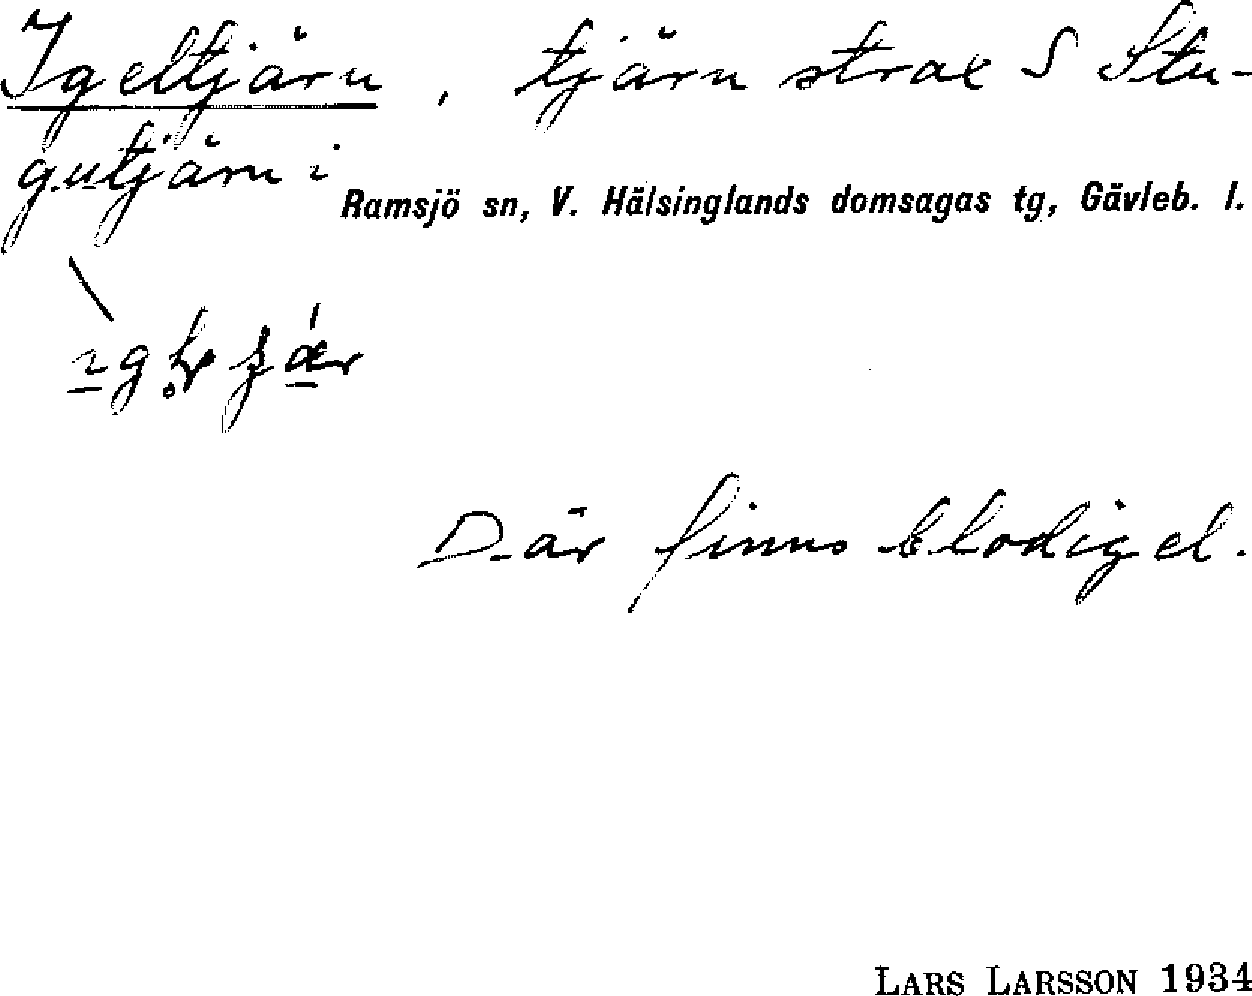 Igeltjärn, tjärn strax S Stu-
gutjärn i
Ramsjö sn, V. Hälsinglands domsagas tg, Gävleb. l.
Där finns blodigel.
LARS LARSSON 1934